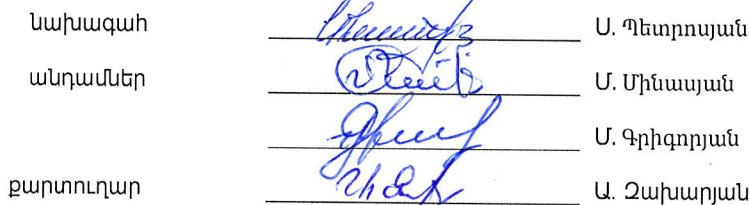 նախագահ Ս. Պետրոսյան
անդամներ Մ. Մինասյան
Մ. Գրիգորյան
քարտուղար Ա. Զախարյան